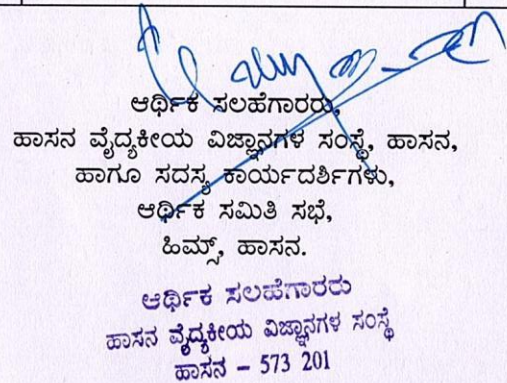 ಆರ್ಥಿಕ ಸಲಹೆಗಾರರು,
ಹಾಸನ ವೈದ್ಯಕೀಯ ವಿಜ್ಞಾನಗಳ ಸಂಸ್ಥೆ, ಹಾಸನ,
ಹಾಗೂ ಸದಸ್ಯ ಕಾರ್ಯದರ್ಶಿಗಳು,
ಆರ್ಥಿಕ ಸಮಿತಿ ಸಭೆ,
ಹಿಮ್ಸ್, ಹಾಸನ.
ಆರ್ಥಿಕ ಸಲಹೆಗಾರರು
ಹಾಸನ ವೈದ್ಯಕೀಯ ವಿಜ್ಞಾನಗಳ ಸಂಸ್ಥೆ
ಹಾಸನ – 573 201